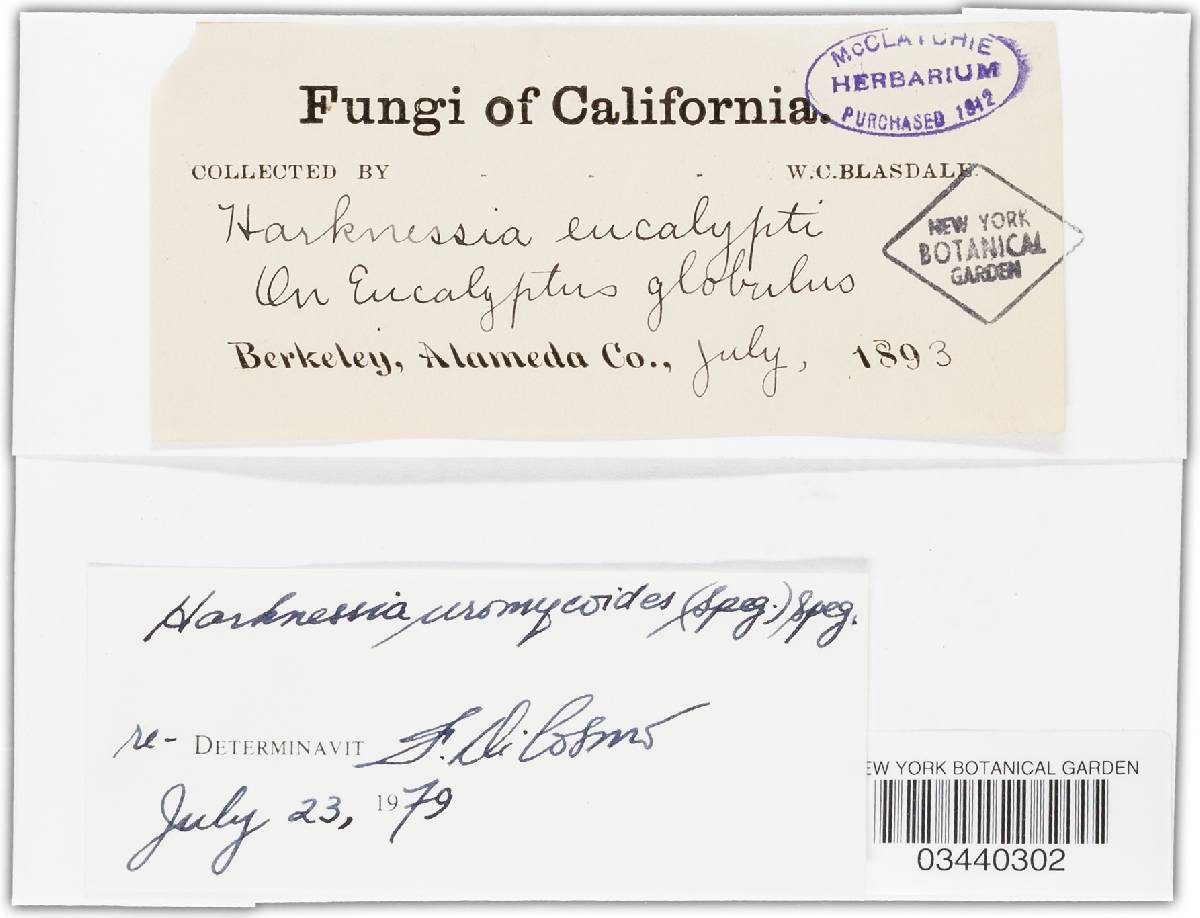 McCLATCHIE
HERBARIUM
PURCHASED 1912
Fungi of California.
COLLECTED BY - - - W.C.BLASDALE.
Harknessia eucalypti
On Eucalyptus globulus
Berkeley, Alameda Co., July, 1893
NEW YORK
BOTANICAL
GARDEN
Harknessia uromycoides (Speg.) Speg.
re- DETERMINAVIT F. DiCosmo
July 23, 1979
EW YORK BOTANICAL GARDEN
03440302